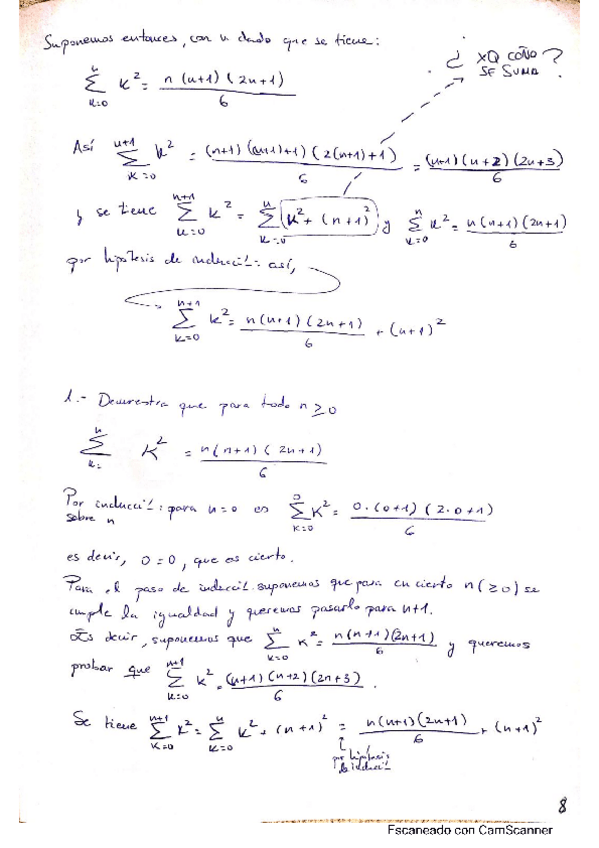 Suponemos entonces, con n dado que se tiene:
¿ XQ COÑO ?
SE SUMA
n Σ k=0 k² = n(n+1)(2n+1) / 6
Así n+1 Σ k=0 k² = (n+1)((n+1)+1)(2(n+1)+1) / 6 = (n+1)(n+2)(2n+3) / 6
y se tiene n+1 Σ k=0 k² = n Σ k=0 k² + (n+1)² y n Σ k=0 k² = n(n+1)(2n+1) / 6
por hipótesis de inducci: así,
n+1 Σ k=0 k² = n(n+1)(2n+1) / 6 + (n+1)²
1.- Demuestra que para todo n ≥ 0
n Σ k= k² = n(n+1)(2n+1) / 6
Por inducci: para n=0 es 0 Σ k=0 k² = 0·(0+1)(2·0+1) / 6
sobre n
es decir, 0=0, que es cierto.
Para el paso de inducci. suponemos que para un cierto n(≥0) se
cumple la igualdad y queremos pasarlo para n+1.
Es decir, suponemos que n Σ k=0 k² = n(n+1)(2n+1) / 6 y queremos
probar que n+1 Σ k=0 k² = (n+1)(n+2)(2n+3) / 6 .
Se tiene n+1 Σ k=0 k² = n Σ k=0 k² + (n+1)² = n(n+1)(2n+1) / 6 + (n+1)²
por hipótesis
de inducci
8
Escaneado con CamScanner